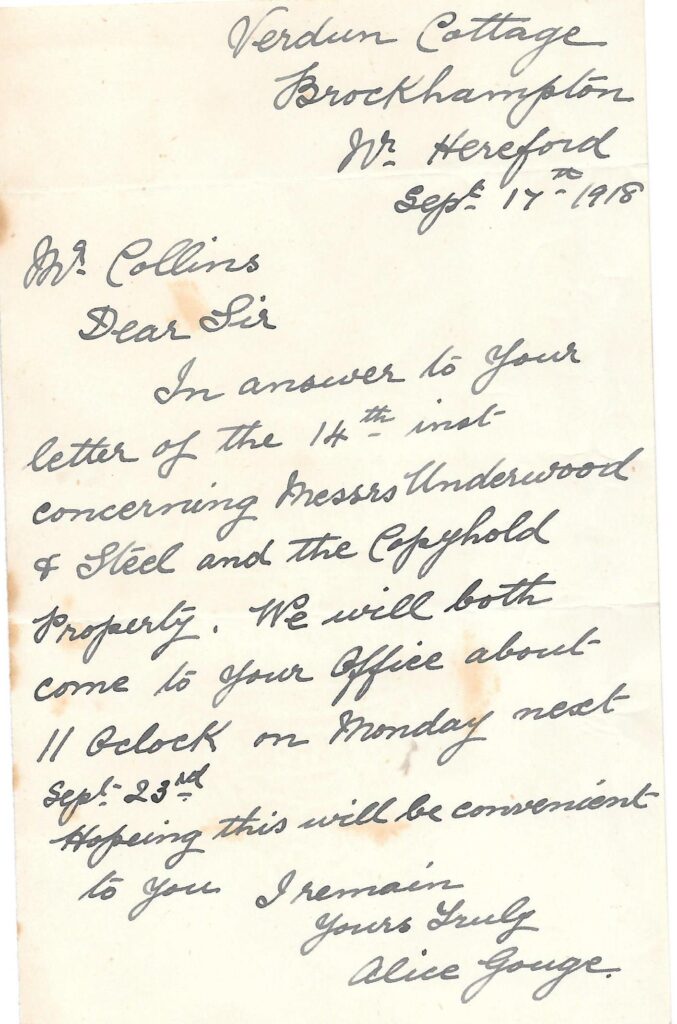 Verdun Cottage
Brockhampton
Nr. Hereford
Sept. 17th 1918
Mr. Collins
Dear Sir
In answer to Your
letter of the 14th inst
concerning Messrs Underwood
& Steel and the Copyhold
Property. We will both
come to Your Office about
11 Oclock on Monday next
Sept. 23rd
Hopeing this will be convenient
to You I remain
Yours Truly
Alice Gouge.